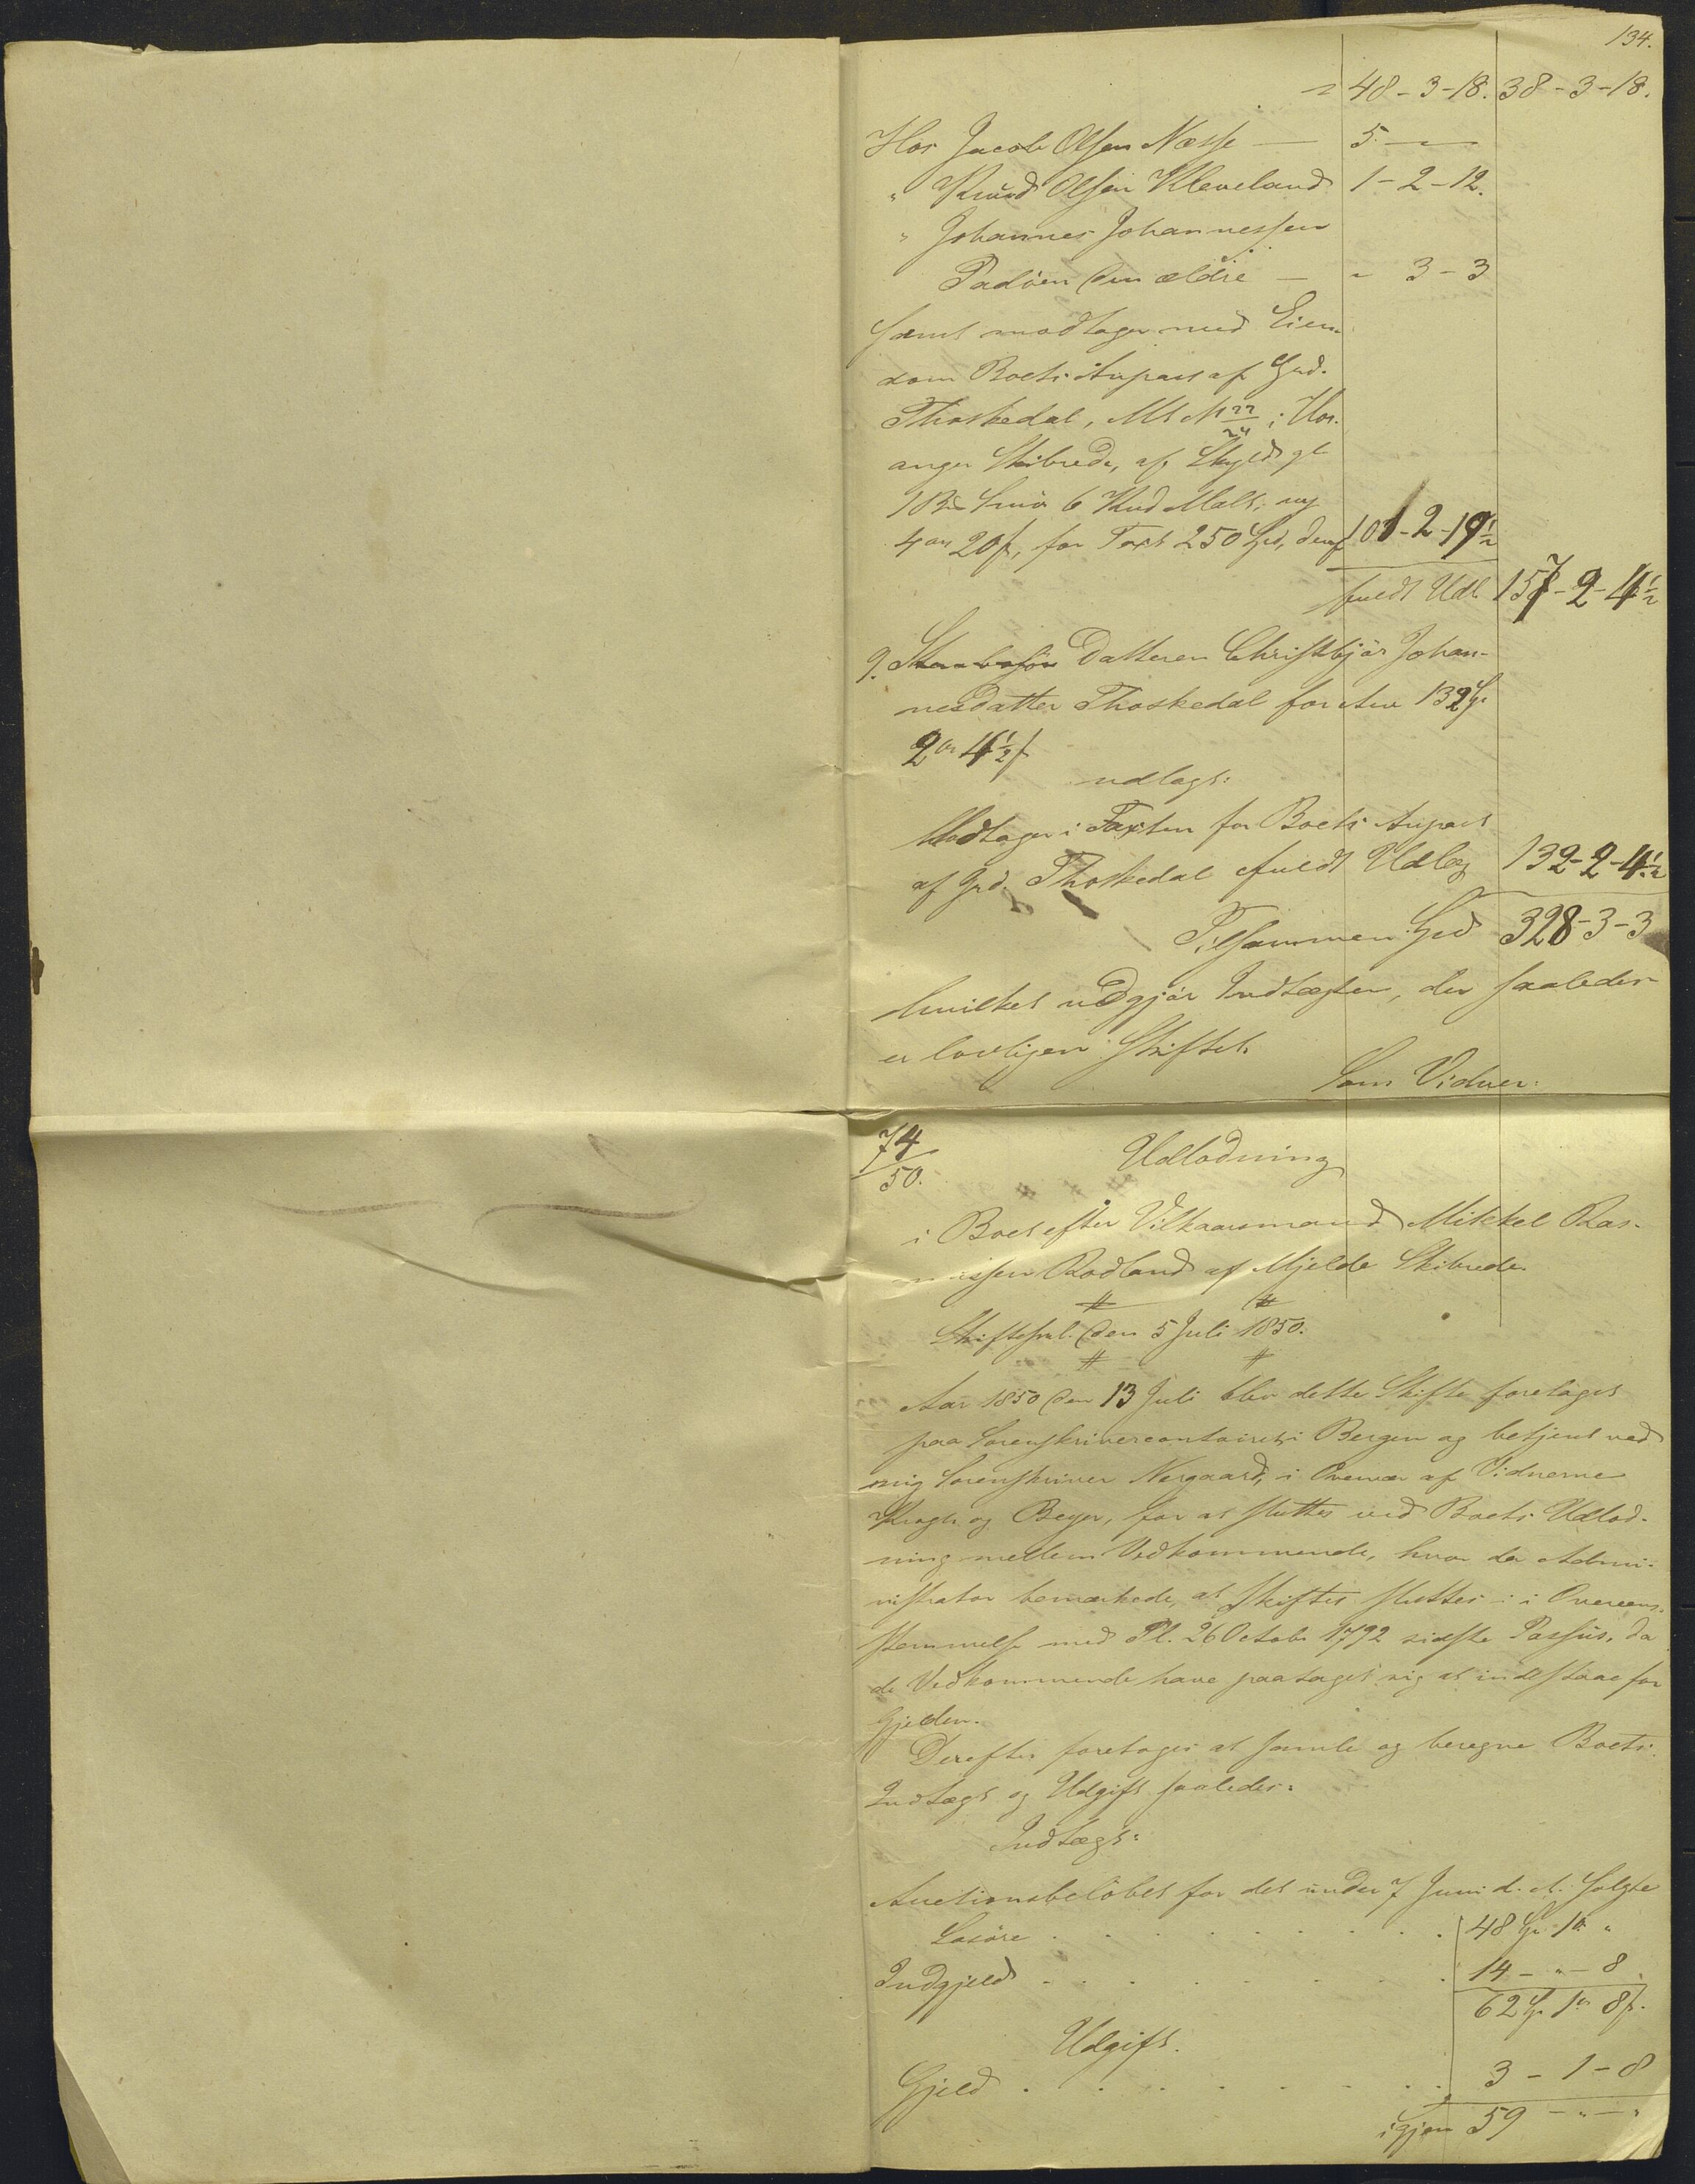 134.
48-3-18. 38-3-18.
Hos Jacob Olsen Næsse — 5 —
" Knud Olsen Kleveland 1-2-12.
" Johannes Johannessen
Padøen den ældre — " 3-3
samt modtager med Eien
dom Boets Anpart af Grd.
Thoskedal, Mt N 22/24 i Hos-
anger Skibrede, af Skyld gl
1 Bpd Smør 6 Kud Malt, ny
4 ort 20 s, for Taxt 250 Spd, deraf 101-2-19½
fuldt Udl 157-2-4½
9. Datteren Christbjør Johan-
nesdatter Thoskedal for Arv 132 Sp
2 ort 4½ s
udlagt:
Modtager i Taxten for Boets Anpart
af Grd. Thoskedal fuldt Udlæg 132-2-4½
Tilsammen Spd 328-3-3
hvilket udgjør Indtægten, der saaledes
er lovligen skiftet.
Som Vidner:
74/50.
Udlodning
i Boet efter Vilkaarsmand Mikkel Ras-
mussen Rodland af Mjelde Skibrede.
Skiftesml. den 5 Juli 1850.
Aar 1850 den 13 Juli blev dette Skifte foretaget
paa Sorenskrivercontoiret i Bergen og betjent ved
mig Sorenskriver Nergaard, i Overvær af Vidnerne
Krogh og Beyer, for at sluttes ved Boets Udlod-
ning mellem Vedkommende, hvor da Admi-
nistrator bemærkede, at Skiftet sluttes i Overeens-
stemmelse med Pl. 26 Octobr 1792 sidste Passus, da
de Vedkommende have paataget sig at indestaae for
Gjelden.
Derefter foretoges at samle og beregne Boets
Indtægt og Udgift saaledes:
Indtægt:
Auctionsbeløbet for det under 7 Juni d. A. solgte
Løsøre . . . . . . . . 48 Sp 1 ort "
Indgjeld . . . . . . . 14 - " - 8
62 Sp 1 ort 8 s.
Udgift.
Gjeld . . . . . . . . 3 - 1 - 8
igjen 59 - " - "